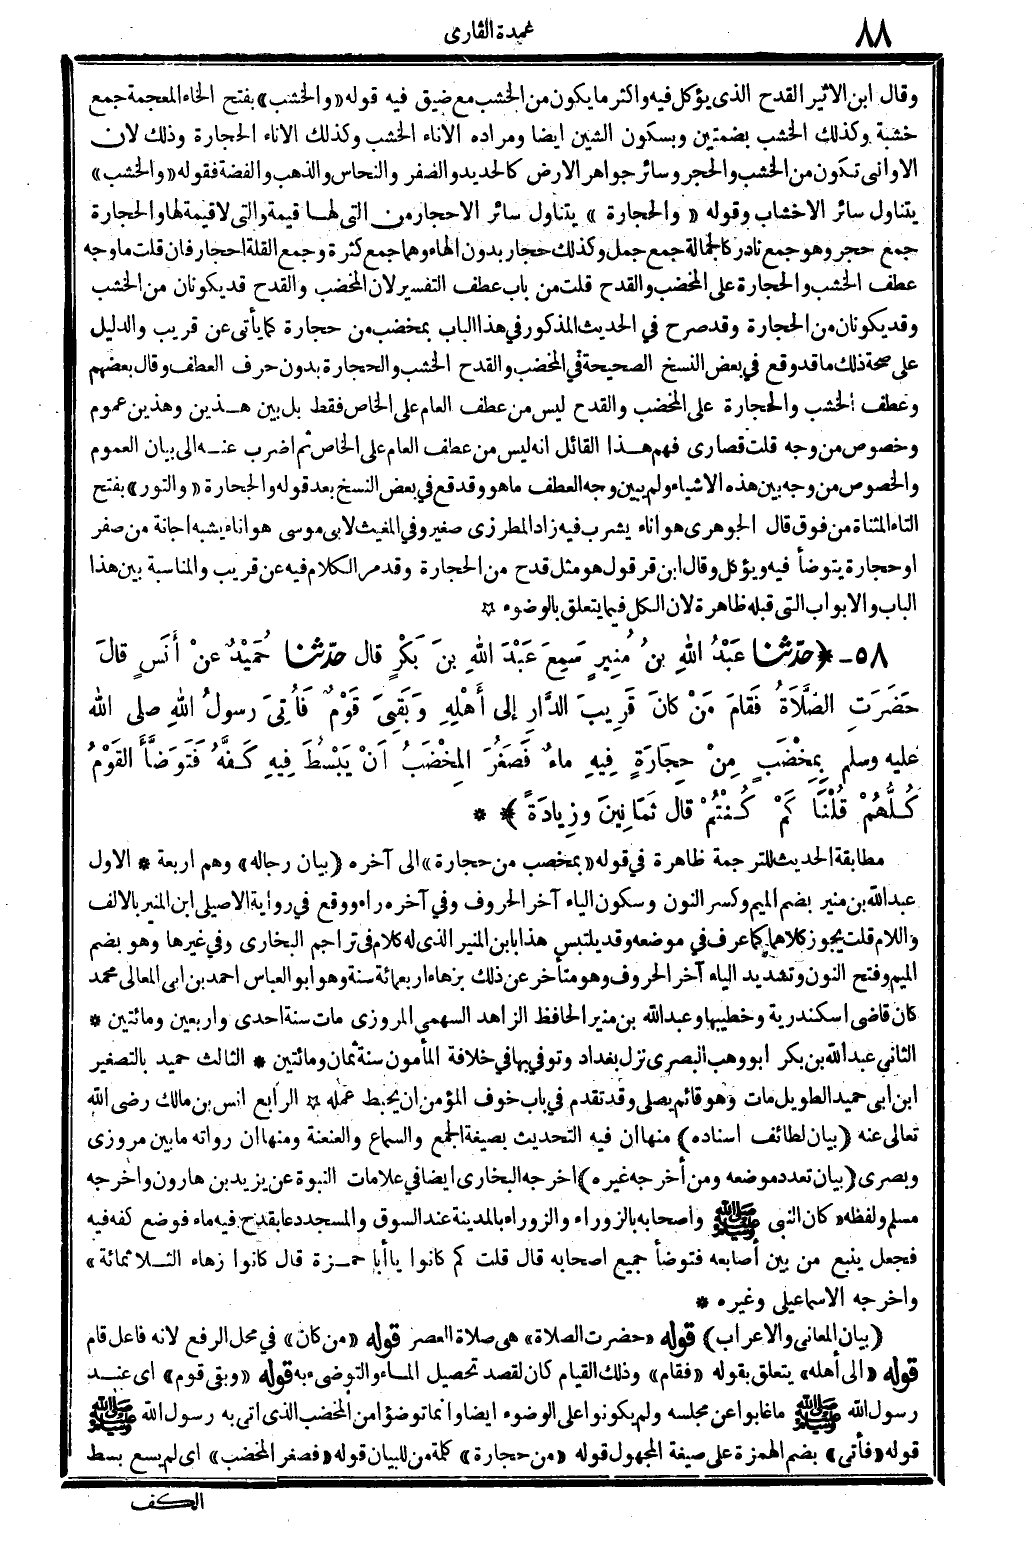 ٨٨
عمدة القارى
وقال ابن الاثير القدح الذى يؤكل فيه واكثر ما يكون من الخشب مع ضيق فيه قوله «والخشب» بفتح الخاء المعجمة جمع
خشبة وكذلك الخشب بضمتين وبسكون الشين ايضا ومراده الاناء الخشب وكذلك الاناء الحجارة وذلك لان
الاوانى تكون من الخشب والحجر وسائر جواهر الارض كالحديد والصفر والنحاس والذهب والفضة فقوله «والخشب»
يتناول سائر الاخشاب وقوله « والحجارة » يتناول سائر الاحجار من التى لها قيمة والتى لا قيمة لها والحجارة
جمع حجر وهو جمع نادر كالجمالة جمع جمل وكذلك حجار بدون الهاء وهما جمع كثرة وجمع القلة احجار فان قلت ما وجه
عطف الخشب والحجارة على المخضب والقدح قلت من باب عطف التفسير لان المخضب والقدح قد يكونان من الخشب
وقد يكونان من الحجارة وقد صرح في الحديث المذكور في هذا الباب بمخضب من حجارة كما يأتى عن قريب والدليل
على صحة ذلك ما قد وقع في بعض النسخ الصحيحة في المخضب والقدح الخشب والحجارة بدون حرف العطف وقال بعضهم
وعطف الخشب والحجارة على المخضب والقدح ليس من عطف العام على الخاص فقط بل بين هــذين وهذين عموم
وخصوص من وجه قلت قصارى فهم هــذا القائل انه ليس من عطف العام على الخاص ثم اضرب عنــه الى بيان العموم
والخصوص من وجه بين هذه الاشياء ولم يبين وجه العطف ما هو وقد قع في بعض النسخ بعد قوله والحجارة «والتور» بفتح
التاء المثناة من فوق قال الجوهرى هو اناء يشرب فيه زاد المطرزى صغير وفي المغيث لابى موسى هو اناء يشبه اجانة من صفر
او حجارة يتوضأ فيه ويؤكل وقال ابن قرقول هو مثل قدح من الحجارة وقد مر الكلام فيه عن قريب والمناسبة بين هذا
الباب والابواب التى قبله ظاهرة لان الكل فيما يتعلق بالوضوء ☆
٥٨ـ ﴿حدّثنا عَبْدُ اللهِ بنُ مُنِيرٍ سَمِعَ عَبْدَ اللهِ بنَ بَكْرٍ قال حدّثنا حُمَيْدٌ عنْ أَنَسٍ قالَ
حَضَرَتِ الصَّلاَةُ فَقامَ مَنْ كانَ قَرِيبَ الدَّارِ إلى أَهْلِهِ وَبَقِيَ قَوْمٌ فَأُتِيَ رسولُ اللهِ صلى الله
عليه وسلم بِمِخْضَبٍ مِنْ حِجارَةٍ فِيهِ ماءٌ فَصَغُرَ المِخْضَبُ أنْ يَبْسُطَ فِيهِ كَفَّهُ فَتَوَضَّأَ القَوْمُ
كُلُّهُمْ قُلْنَا كَمْ كُنْتُمْ قال ثَمَانِينَ وزِيادَةً﴾ *
مطابقة الحديث للترجمة ظاهرة في قوله «بمخضب من حجارة» الى آخره (بيان رجاله) وهم اربعة * الاول
عبد الله بن منير بضم الميم وكسر النون وسكون الياء آخر الحروف وفي آخره راء ووقع في رواية الاصيلى ابن المنير بالالف
واللام قلت يجوز كلاهما كما عرف في موضعه وقد يلتبس هذا بابن المنير الذى له كلام فى تراجم البخارى وفي غيرها وهو بضم
الميم وفتح النون وتشديد الياء آخر الحروف وهو متأخر عن ذلك بزهاء اربعمائة سنة وهو ابو العباس احمد بن ابى المعالى محمد
كان قاضى اسكندرية وخطيبها وعبد الله بن منير الحافظ الزاهد السهمى المروزى مات سنة احدى واربعين ومائتين *
الثانى عبد الله بن بكر ابو وهب البصرى نزل بغداد وتوفي بها في خلافة المأمون سنة ثمان ومائتين * الثالث حميد بالتصغير
ابن ابى حميد الطويل مات وهو قائم يصلى وقد تقدم في باب خوف المؤمن ان يحبط عمله ☆ الرابع انس بن مالك رضى الله
تعالى عنه (بيان لطائف اسناده) منها ان فيه التحديث بصيغة الجمع والسماع والعنعنة ومنها ان رواته ما بين مروزى
وبصرى (بيان تعدد موضعه ومن أخرجه غيره) اخرجه البخارى ايضا في علامات النبوة عن يزيد بن هارون واخرجه
مسلم ولفظه «كان النبى ﷺ واصحابه بالزوراء والزوراء بالمدينة عند السوق والمسجد دعا بقدح فيه ماء فوضع كفه فيه
فجعل ينبع من بين أصابعه فتوضأ جميع اصحابه قال قلت كم كانوا يا أبا حمــزة قال كانوا زهاء الثــلاثمائة»
واخرجه الاسماعيلى وغيره *
(بيان المعانى والاعراب) قوله «حضرت الصلاة» هى صلاة العصر قوله «من كان» في محل الرفع لانه فاعل قام
قوله «الى أهله» يتعلق بقوله «فقام» وذلك القيام كان لقصد تحصيل المــاء والتوضىء به قوله «وبقى قوم» اى عنــد
رسول الله ﷺ ما غابوا عن مجلسه ولم يكونوا على الوضوء ايضا وانما توضؤا من المخضب الذى اتى به رسول الله ﷺ
قوله «فأتى» بضم الهمزة على صيغة المجهول قوله «من حجارة» كلمة من للبيان قوله «فصغر المخضب» اى لم يسع بسط
الكف